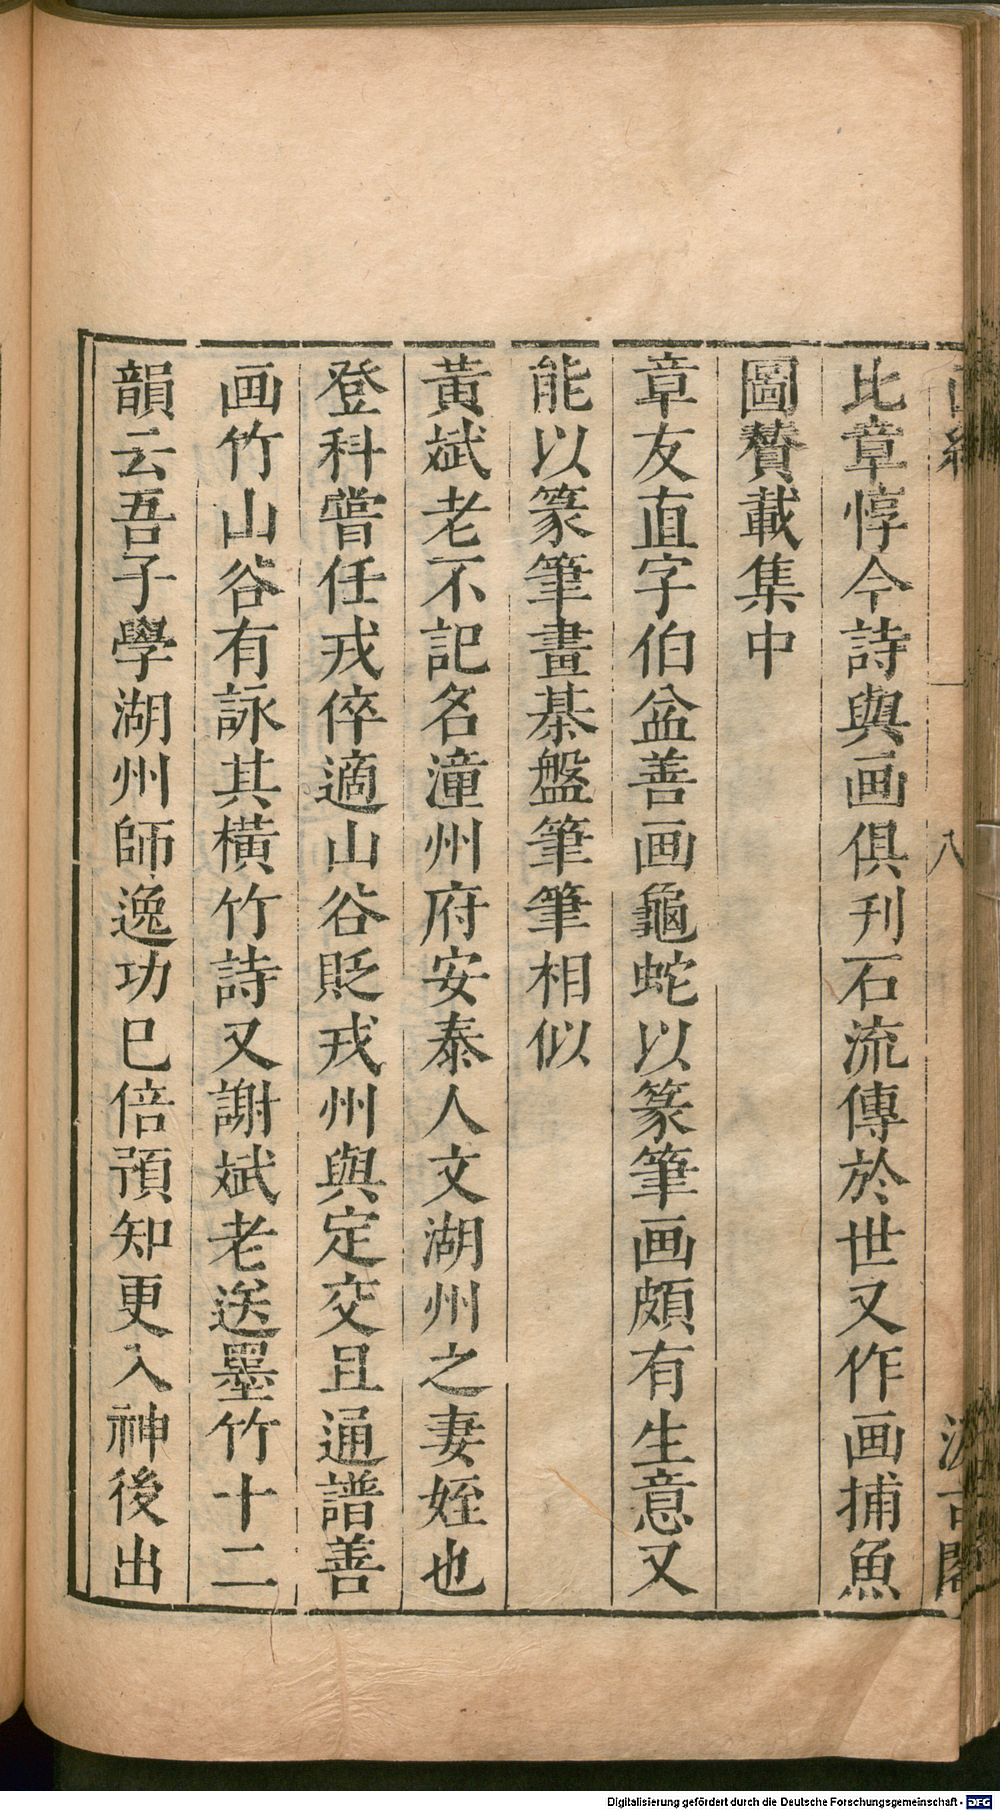 八
比章惇今詩與画俱刊石流傳於世又作画捕魚
圖贊載集中
章友直字伯益善画龜蛇以篆筆画頗有生意又
能以篆筆畫棊盤筆筆相似
黃斌老不記名潼州府安泰人文湖州之妻姪也
登科嘗任戎倅適山谷貶戎州與定交且通譜善
画竹山谷有詠其橫竹詩又謝斌老送墨竹十二
韻云吾子學湖州師逸功已倍預知更入神後出
Digitalisierung gefördert durch die Deutsche Forschungsgemeinschaft - DFG